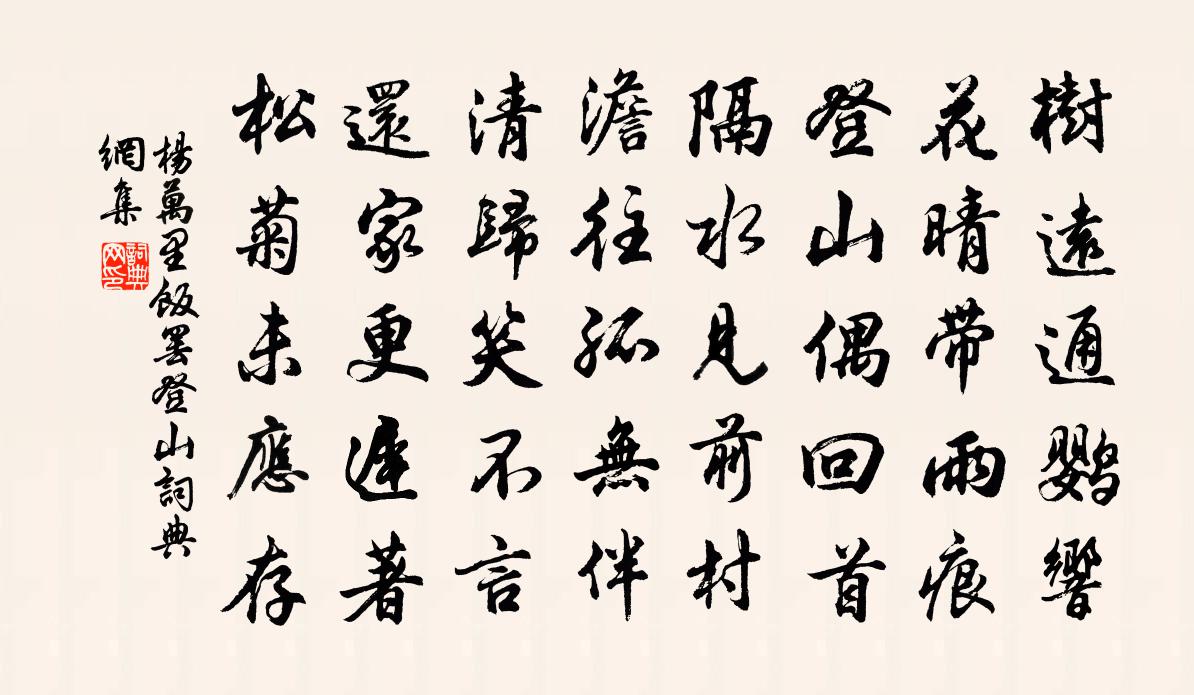 樹遠通鸚響
花晴帶雨痕
登山偶回首
隔水見前村
澹往孤無伴
清歸笑不言
還家更遲著
松菊未應存
楊萬里飯罷登山詞典
網集
詞典
网印